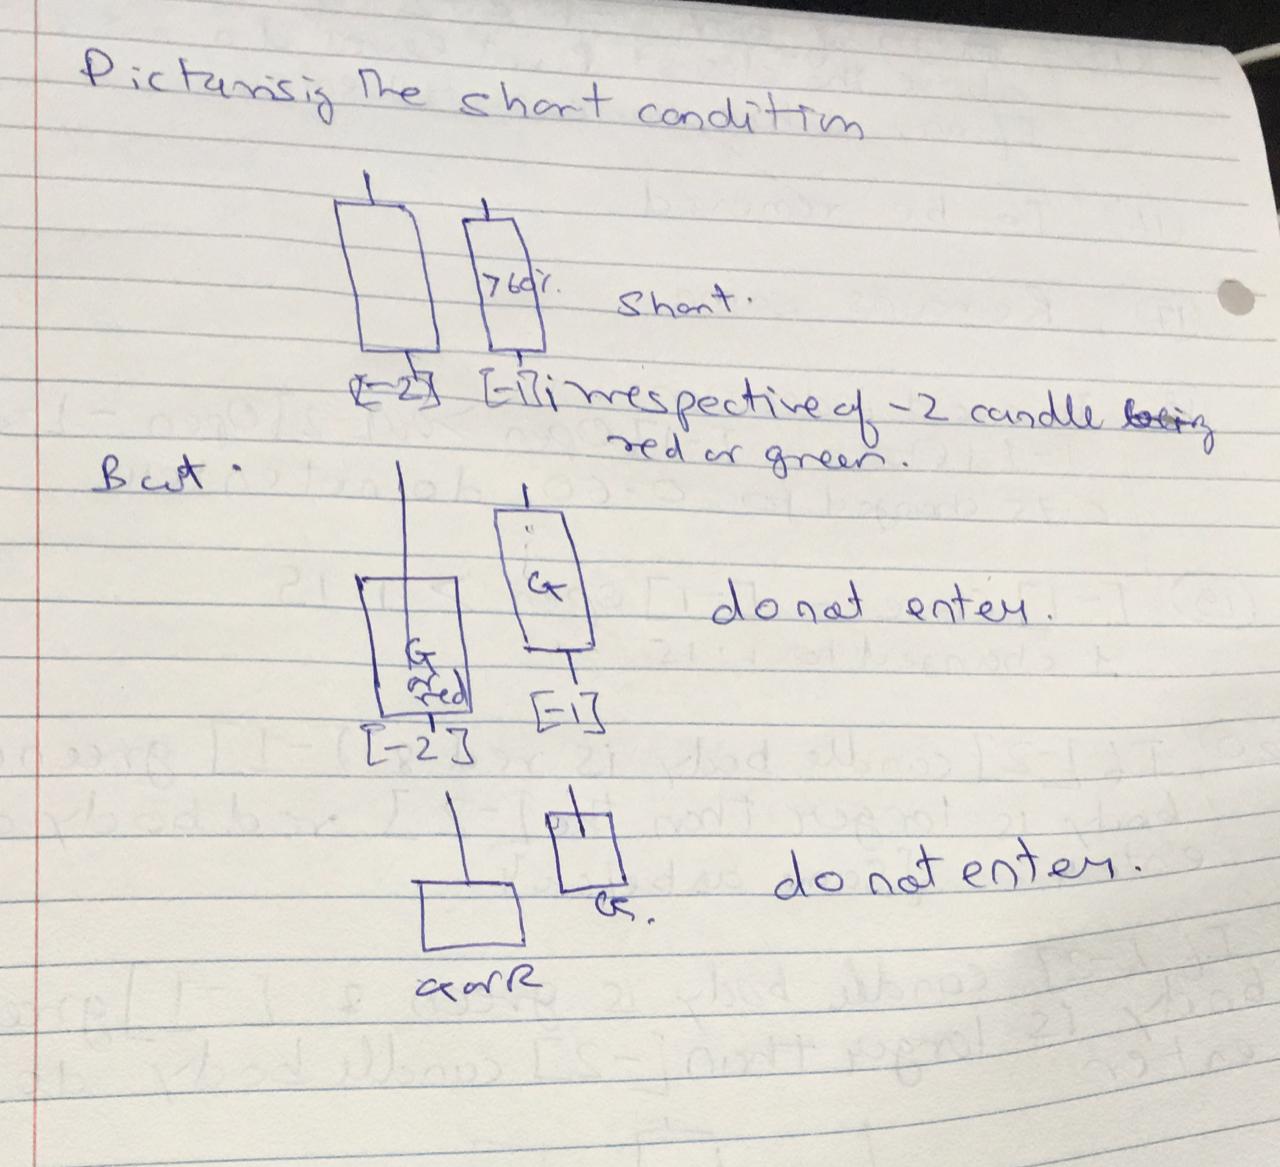 Picturisig The short condition
>60%.
Short.
[-2] [-1] irrespective of -2 candle being
red or green.
But.
G
G
red
do not enter.
[-1]
[-2]
do not enter.
G.
G or R